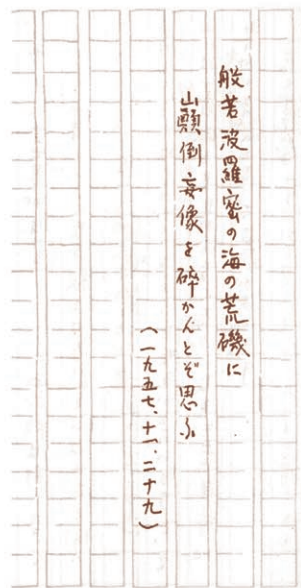 般若波羅密の海の荒磯に
山顚倒妄像を砕かんとぞ思ふ
(一九五七、十一、二十九)